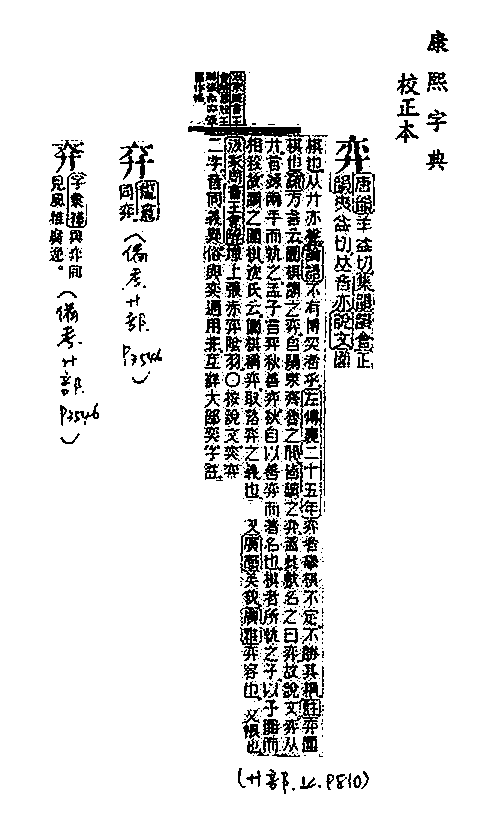 康熙字典
校正本
弈 唐韻羊益切集韻韻會正
韻夷益切𠀤音亦說文圍
棋也从廾亦聲論語不有博奕者乎左傳襄二十五年弈者舉棋不定不勝其耦註弈圍
棋也方言云圍棋謂之弈自關東齊魯之閒皆謂之弈蓋此戲名之曰弈故說文弈从
廾言竦兩手而執之孟子言弈秋善弈秋自以善弈而著名也棋者所執之子以子圍而
相殺故謂之圍棋沈氏云圍棋稱弈取落弈之義也 又廣韻美貌廣雅弈容也 又
汲冢周書王會解壇上張赤弈陰羽○按說文奕弈
二字音同義異俗與奕通用非互詳大部奕字註
(廾部.P810)
龍龕
同弈 (備考廾部 P3546)
字彙補與弈同
見風雅廣逸。(備考廾部 P3546)